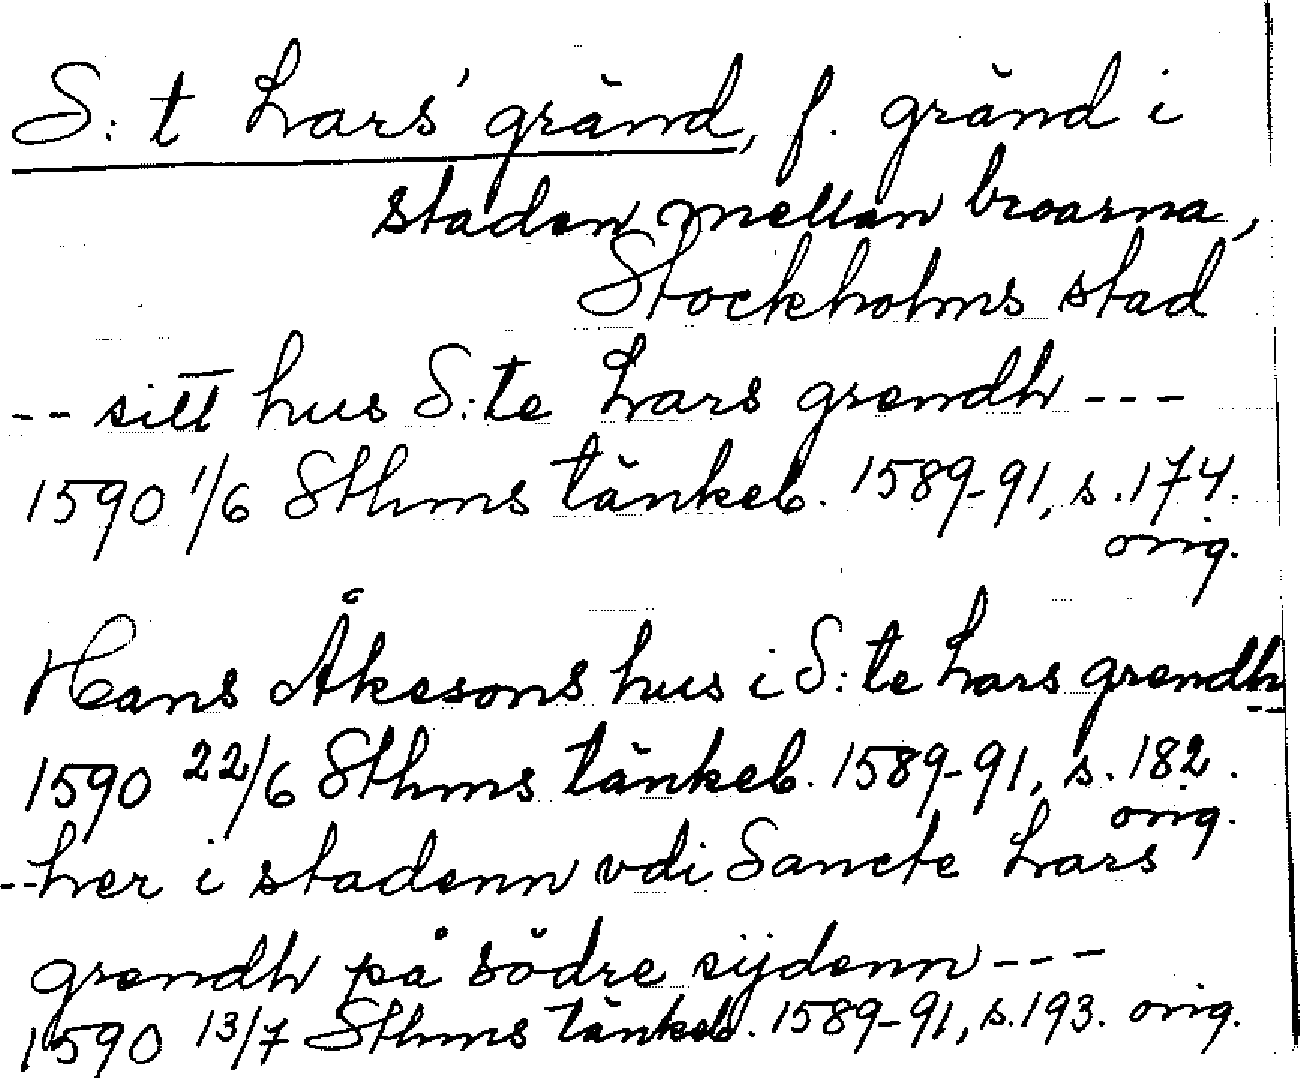 S:t Lars' gränd, f. gränd i
staden mellan broarna,
Stockholms stad
-- sitt hus S:te Lars grendh ---
1590 1/6 Sthms tänkeb. 1589-91, s. 174.
orig.
Hans Åkesons hus i S:te Lars grendh --
1590 22/6 Sthms tänkeb. 1589-91, s. 182.
orig.
-- her i stadenn vdi Sancte Lars
grendh på södre sijdenn ---
1590 13/7 Sthms tänkeb. 1589-91, s. 193. orig.